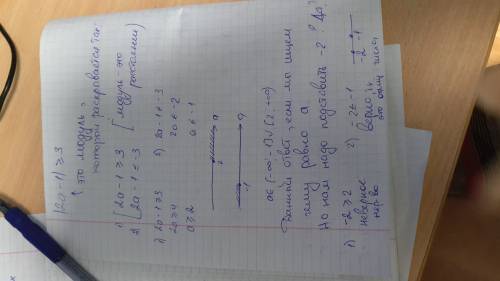 |2a-1| ≥ 3
это модуль,
который раскрывается так
1) [ 2a-1 ≥ 3
2) [ 2a-1 ≤ -3 [модуль - это расстояние]
1) 2a-1 ≥ 3 2) 2a-1 ≤ -3
2a ≥ 4 2a ≤ -2
a ≥ 2 a ≤ -1
2 a
-1
a∈(-∞;-1]∪[2;+∞)
Данный ответ, если мы ищем
чему равно a
Но нам надо подставить -2? Да?
1) -2 ≥ 2 2) -2 ≤ -1 -2 -1
неверное верно,
нер-во это